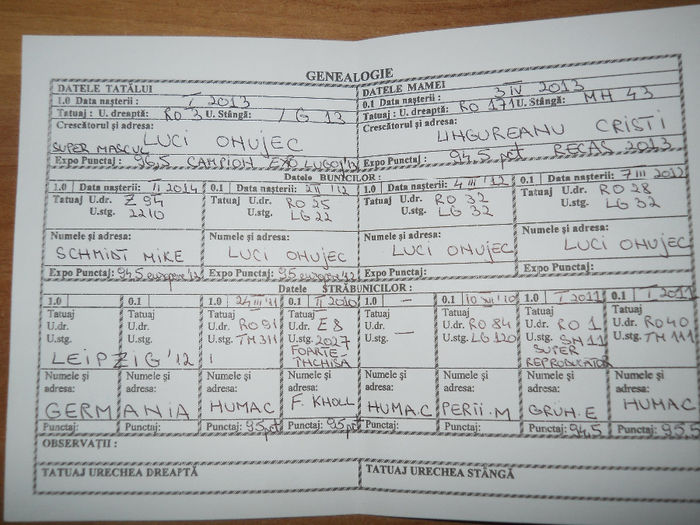 GENEALOGIE
DATELE TATĂLUI DATELE MAMEI
1.0 Data nașterii : I 2013 0.1 Data nașterii : 3 IV 2013
Tatuaj : U. dreaptă: RO 3 U. Stângă: / G 13 Tatuaj : U. dreaptă: RO 171 U. Stângă: MH 43
Crescătorul și adresa: LUCI OHUJEC Crescătorul și adresa: UNGUREANU CRISTI
SUPER MASCUL
Expo Punctaj: 96,5 CAMPION EXPO LUGOJ 13 Expo Punctaj: 94,5 pct RECAS 2013
Datele BUNICILOR:
1.0 Data nașterii: II 2011 0.1 Data nașterii: '12 1.0 Data nașterii: 4 III '12 0.1 Data nașterii: 7 III 2012
Tatuaj U.dr. Z 94 Tatuaj U.dr. RO 25 Tatuaj U.dr. RO 32 Tatuaj U.dr. RO 28
U.stg. 2210 U.stg. LG 22 U.stg. LG 32 U.stg. LG 32
Numele și adresa: Numele și adresa: Numele și adresa: Numele și adresa:
SCHMIDT MIKE LUCI OHUJEC LUCI OHUJEC LUCI OHUJEC
Expo Punctaj: 94,5 europene '12 Expo Punctaj: 95 europene '12 Expo Punctaj: Expo Punctaj:
Datele STRĂBUNICILOR :
1.0 0.1 1.0 24 III '11 0.1 II 2010 1.0 — 0.1 10 XII '10 0.1 I 2011 0.1 I 2011
Tatuaj Tatuaj Tatuaj Tatuaj Tatuaj Tatuaj Tatuaj Tatuaj
U.dr. U.dr. U.dr. RO 91 U.dr. E 8 U.dr. — U.dr. RO 84 U.dr. RO 1 U.dr. RO 40
U.stg. U.stg. U.stg. TM 311 U.stg. 2027 U.stg. U.stg. LG 120 U.stg. SM 11 U.stg. TM 111
LEIPZIG '12 FOARTE ÎNCHISA SUPER REPRODUCATOR
Numele și adresa: Numele și adresa: Numele și adresa: Numele și adresa: Numele și adresa: Numele și adresa: Numele și adresa: Numele și adresa:
GERMANIA HUMAC F. KHOLL HUMA.C PERII.M GRUH.E HUMAC
Punctaj: Punctaj: Punctaj: 95 pct Punctaj: 95 pct Punctaj: Punctaj: Punctaj: 94,5 Punctaj: 95,5
OBSERVAȚII :
TATUAJ URECHEA DREAPTĂ TATUAJ URECHEA STÂNGĂ